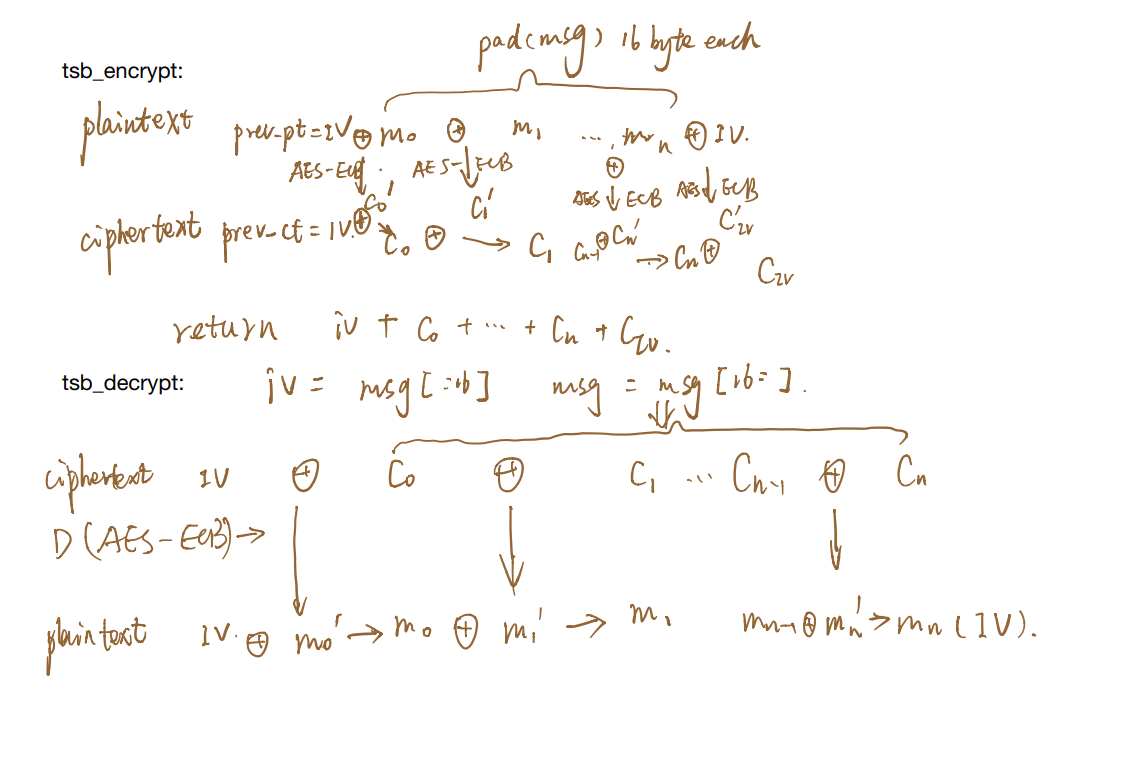 pad(msg) 16 byte each
tsb_encrypt:
plaintext prev-pt = IV ⊕ m₀ ⊕ m₁ ..., mₙ ⊕ IV.
AES-ECB ↓ AES-↓ECB ⊕ AES ↓ ECB AES↓ECB
C₀' C₁' C'ᵢᵥ
ciphertext prev-ct = IV. ⊕ → C₀ ⊕ → C₁ Cₙ₋₁ ⊕ Cₙ' → Cₙ ⊕ Cᵢᵥ
return iv + C₀ + ... + Cₙ + Cᵢᵥ.
tsb_decrypt: iv = msg[:16] msg = msg[16:].
ciphertext IV ⊕ C₀ ⊕ C₁ ... Cₙ₋₁ ⊕ Cₙ
D(AES-ECB)→
plaintext IV. ⊕ m₀' → m₀ ⊕ m₁' → m₁ mₙ₋₁ ⊕ mₙ' → mₙ (IV).